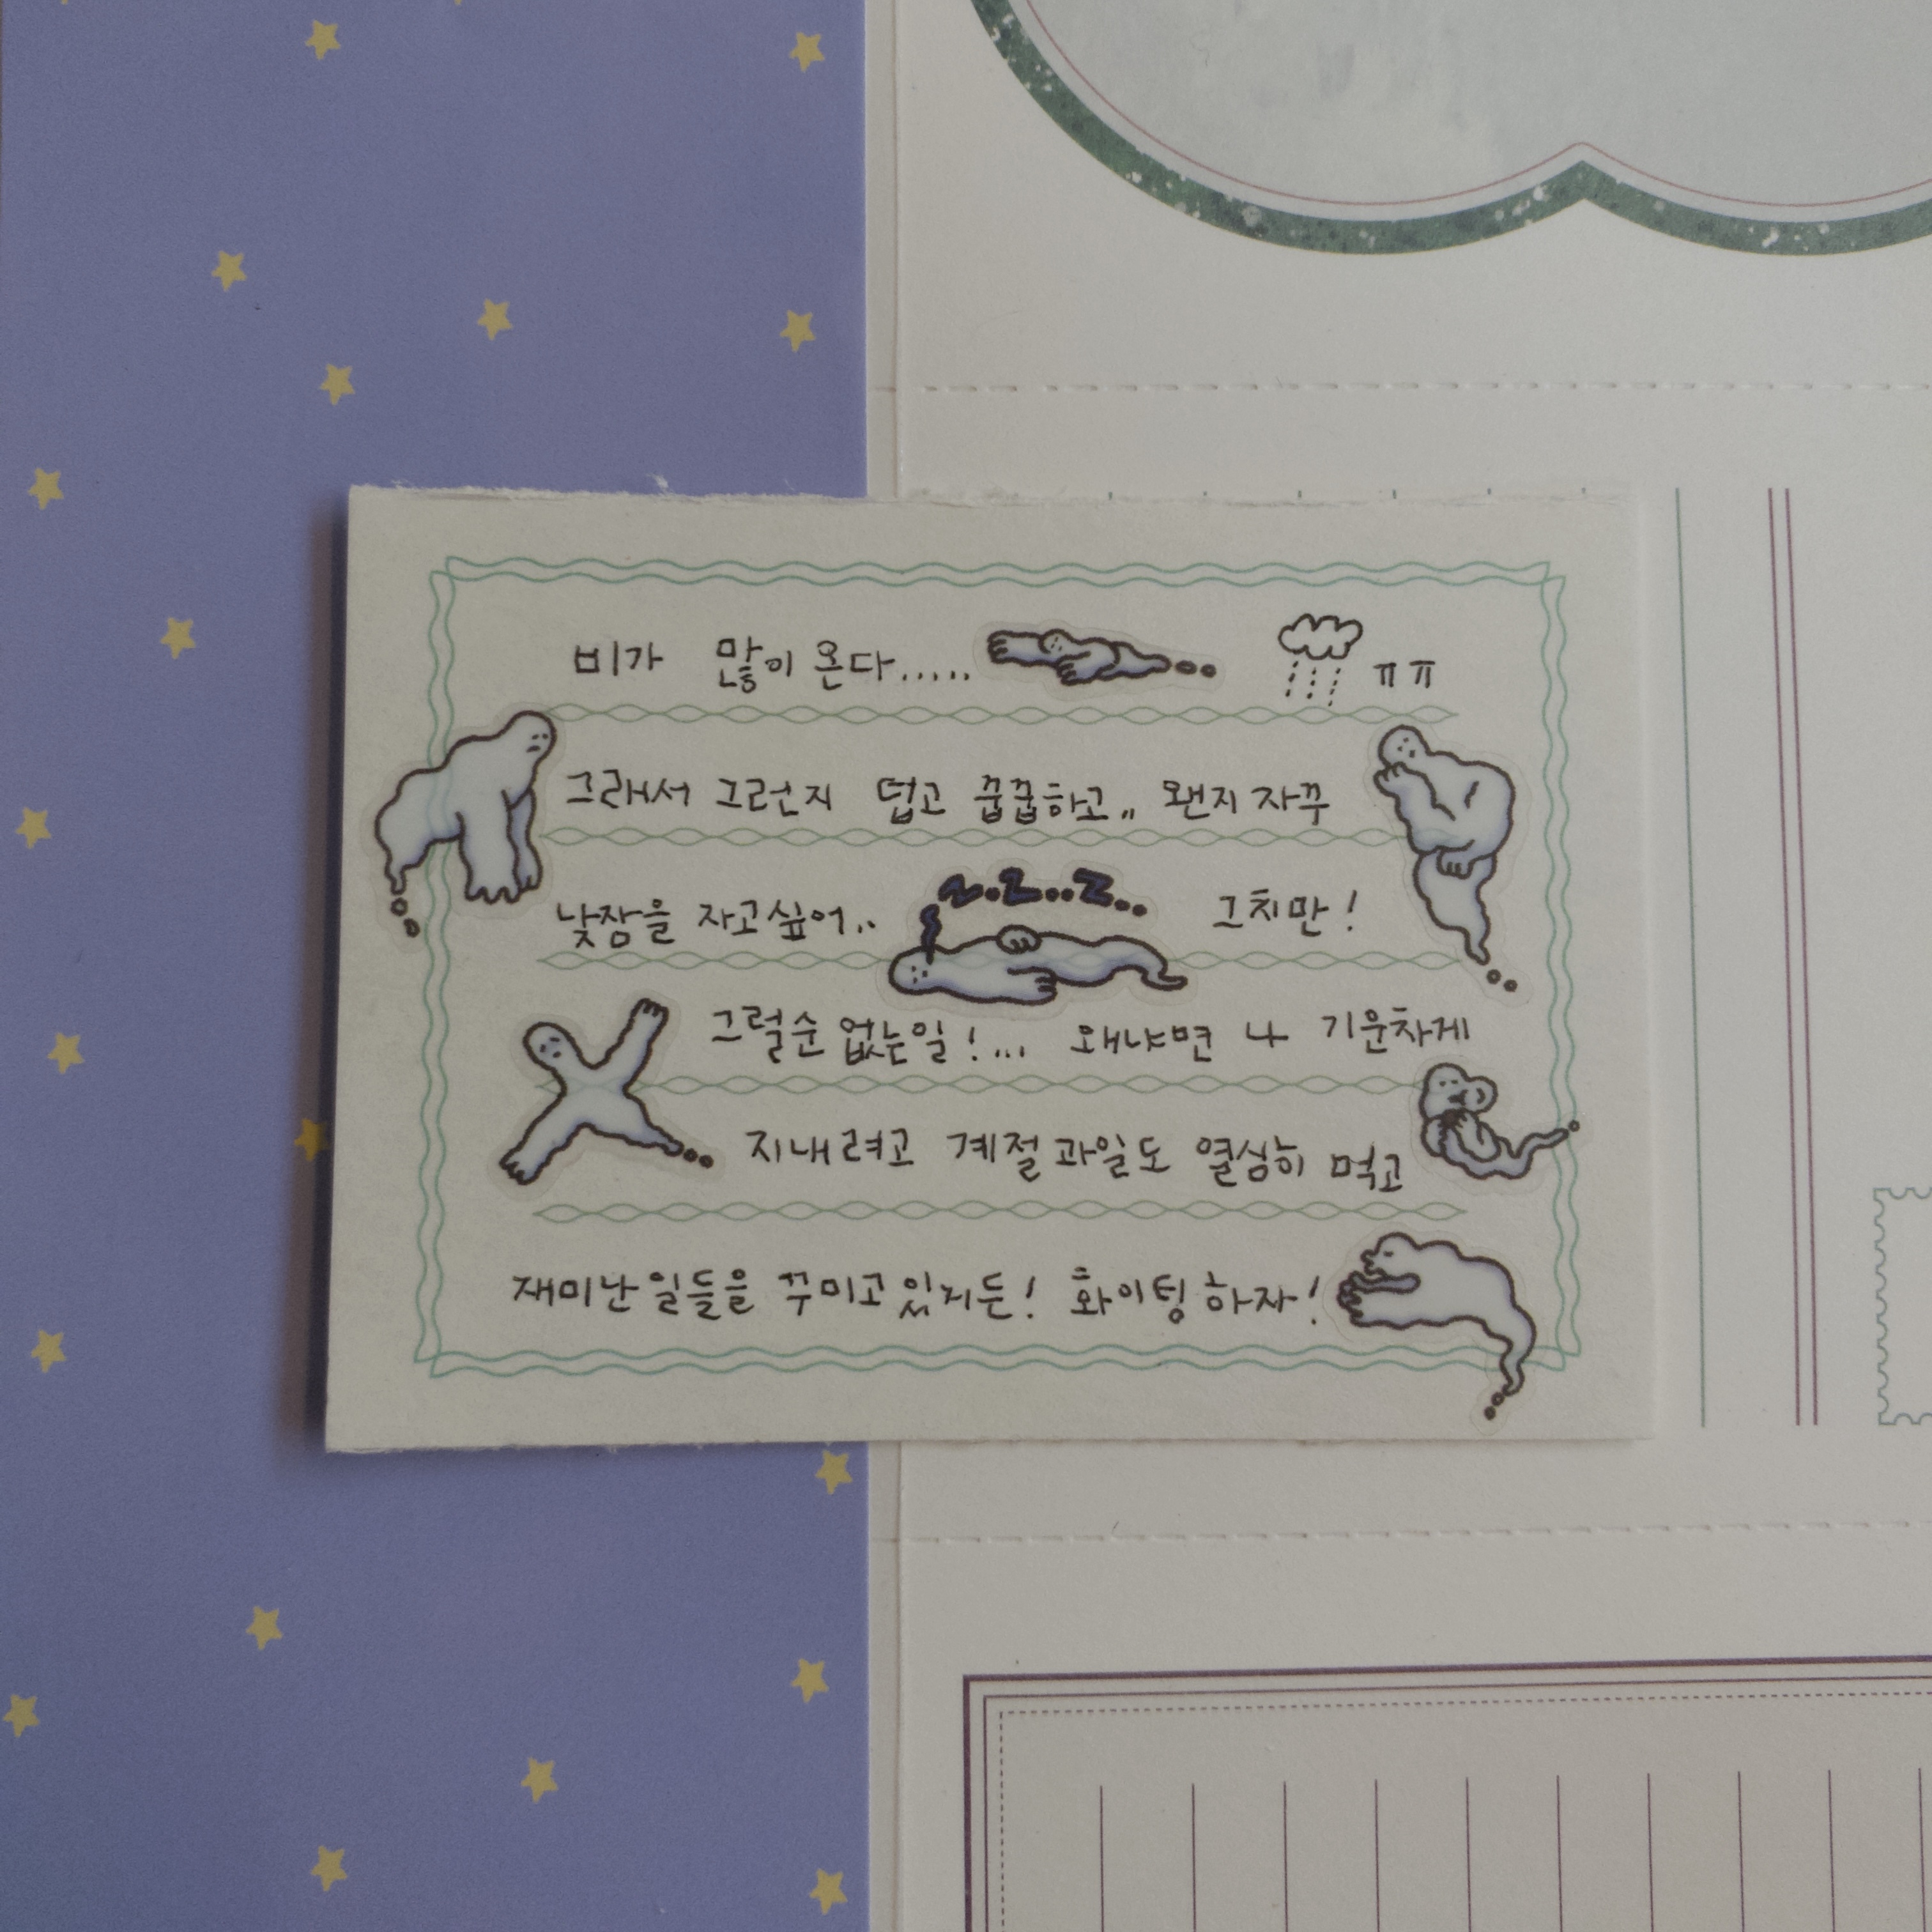 비가 많이 온다..... ㅠㅠ
그래서 그런지 덥고 꿉꿉하고,, 왠지 자꾸
낮잠을 자고싶어.. z.z..z.. 그치만!
그럴순 없는일!... 왜냐면 나 기운차게
지내려고 계절과일도 열심히 먹고
재미난일들을 꾸미고있지든! 화이팅하자!